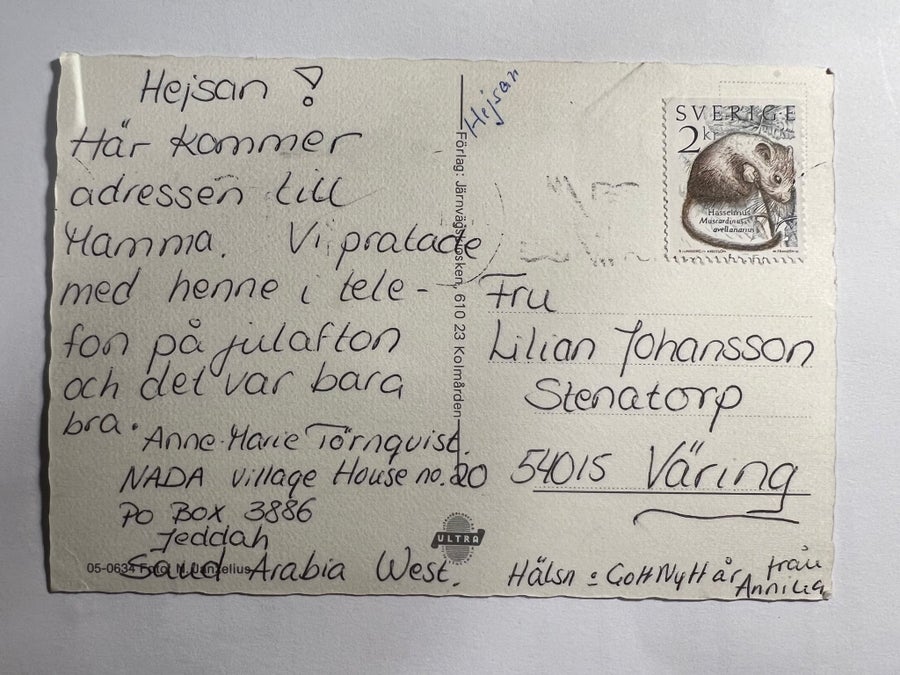 Hejsan !
Här kommer
adressen till
Mamma. Vi pratade
med henne i tele-
fon på julafton
och det var bara
bra.
Anne-Marie Törnquist.
NADA Village House no. 20
PO BOX 3886
Jeddah
Saud Arabia West.
05-0634 Foto: N. Janzelius
Hejsan
Förlag: Järnvägskiosken, 610 23 Kolmården
ULTRA
SVERIGE
2 kr
Hasselmus
Muscardinus
avellanarius
Fru
Lilian Johansson
Stenatorp
54015 Väring
Hälsn = Gott Nytt år från
Annika